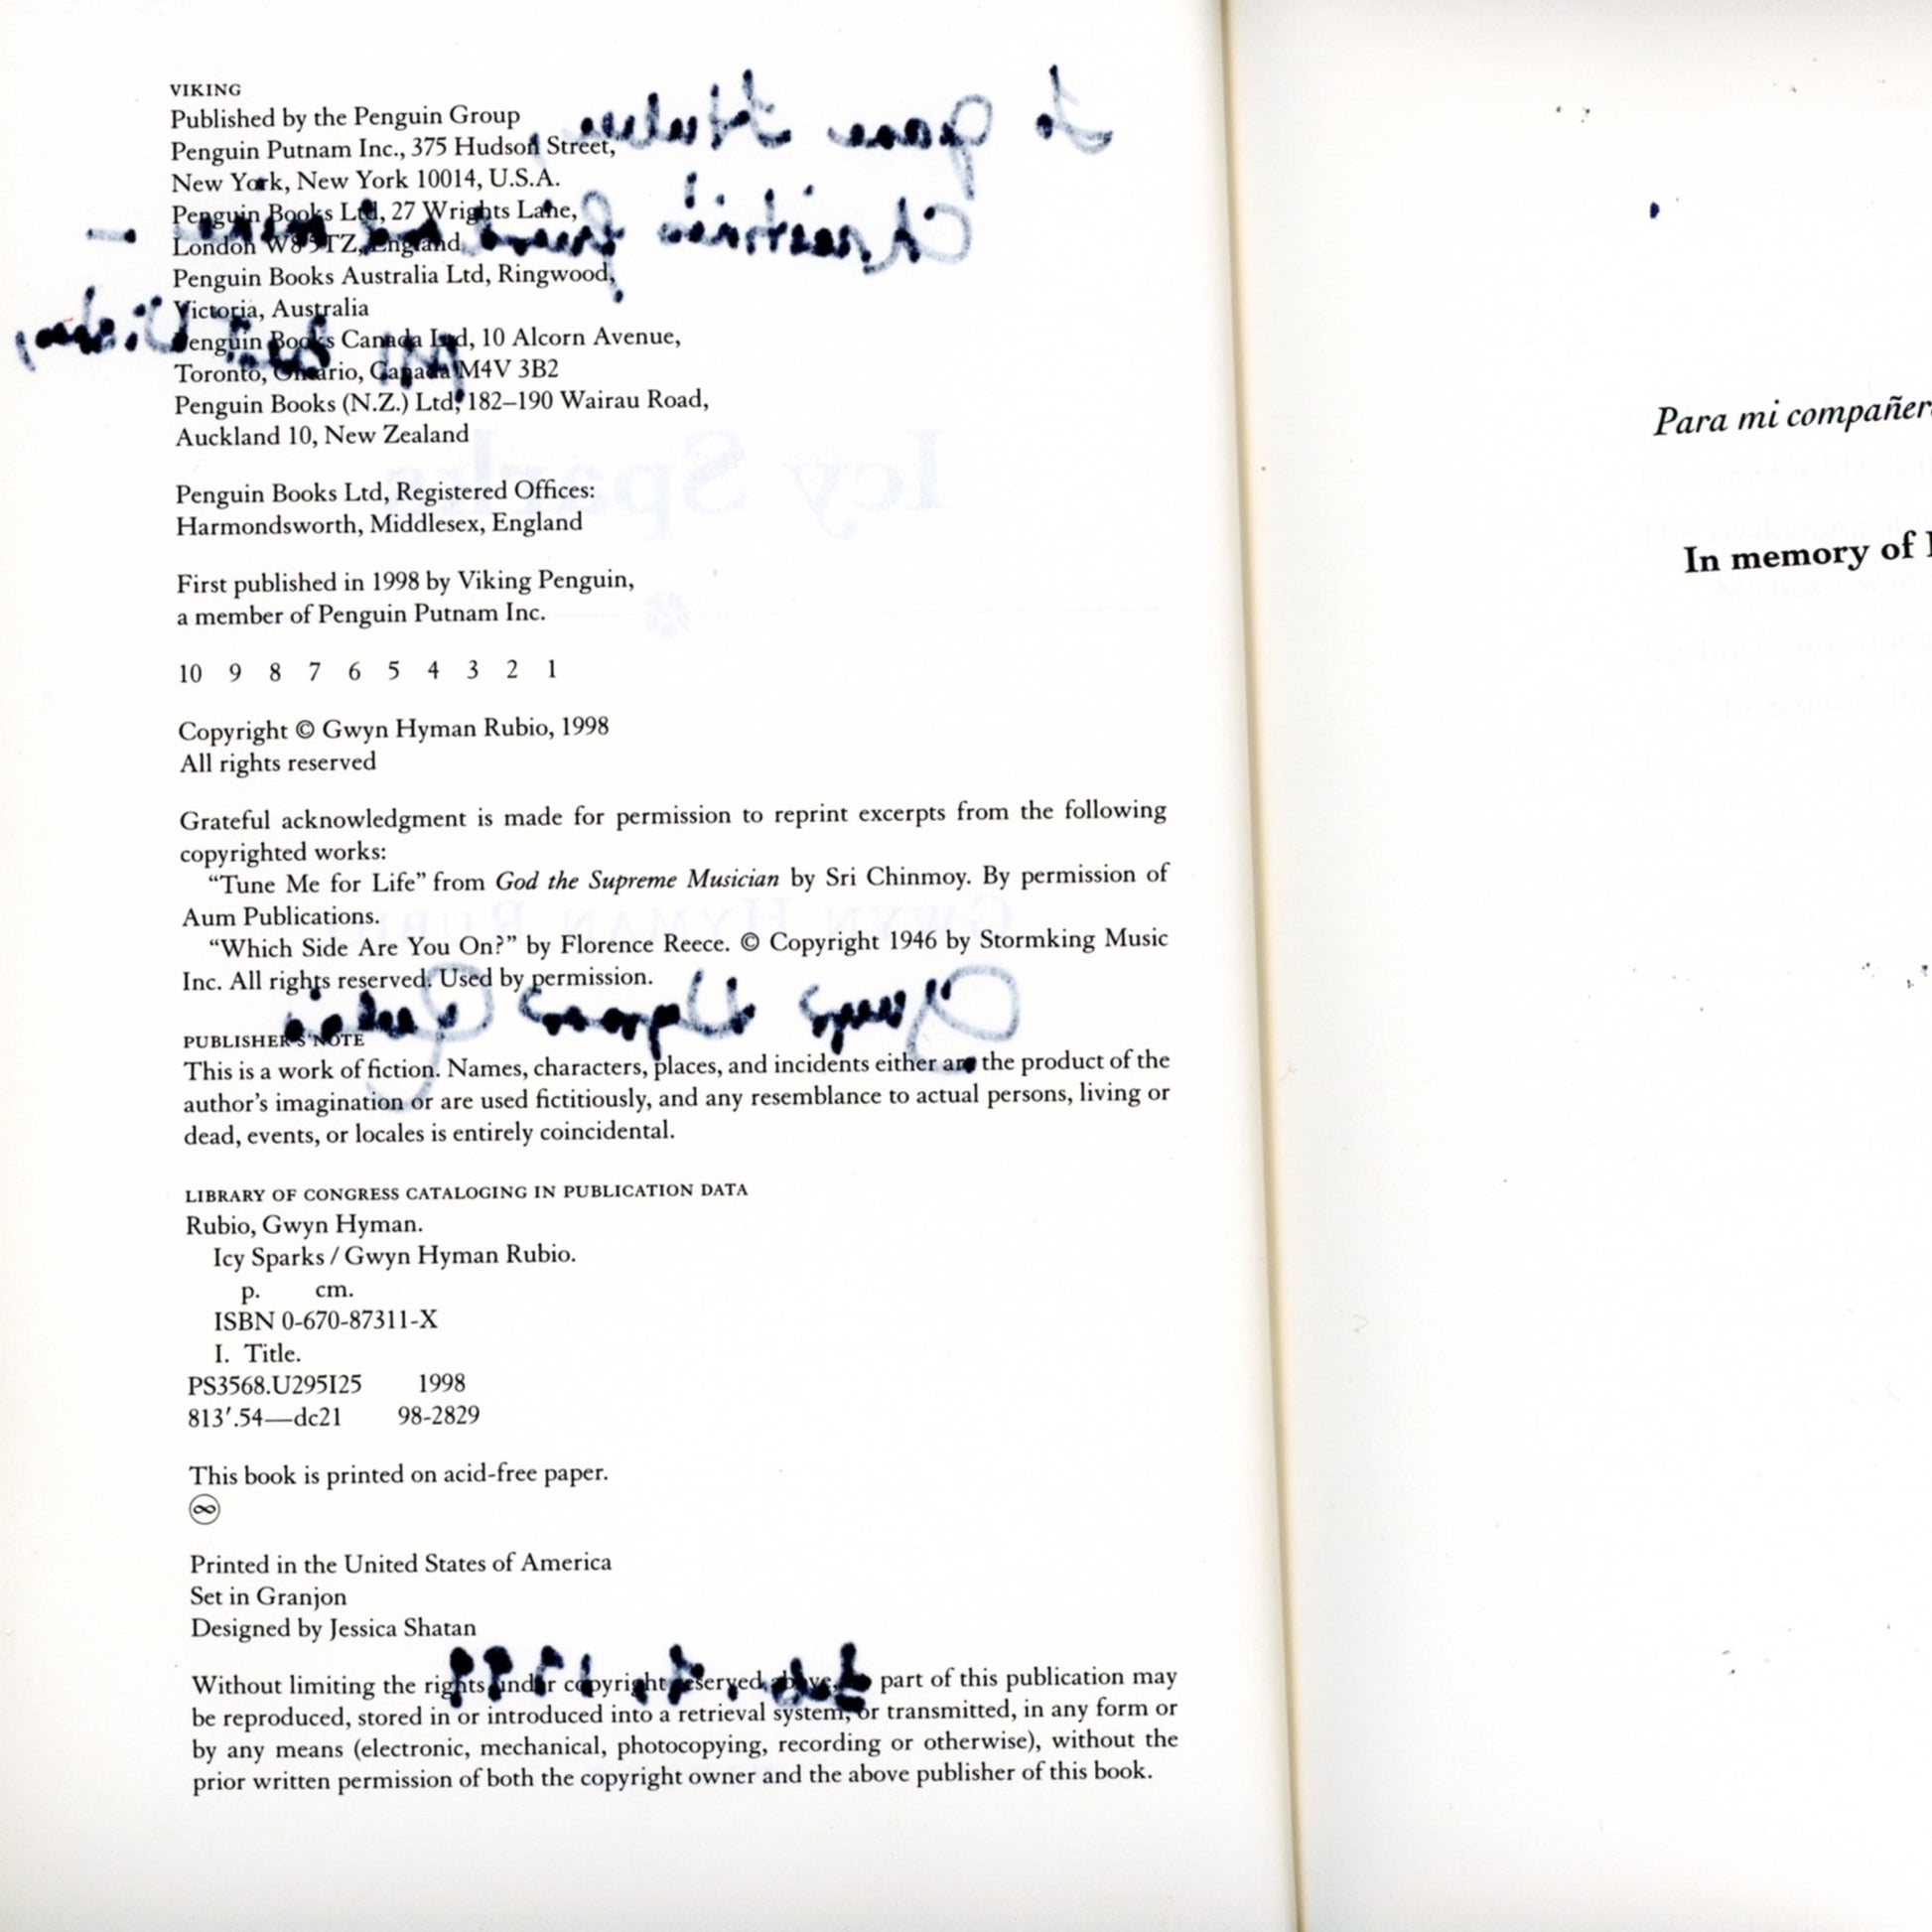 VIKING
Published by the Penguin Group
Penguin Putnam Inc., 375 Hudson Street,
New York, New York 10014, U.S.A.
Penguin Books Ltd, 27 Wrights Lane,
London W8 5TZ, England
Penguin Books Australia Ltd, Ringwood,
Victoria, Australia
Penguin Books Canada Ltd, 10 Alcorn Avenue,
Toronto, Ontario, Canada M4V 3B2
Penguin Books (N.Z.) Ltd, 182–190 Wairau Road,
Auckland 10, New Zealand
Icy Sparks
Penguin Books Ltd, Registered Offices:
Harmondsworth, Middlesex, England
First published in 1998 by Viking Penguin,
a member of Penguin Putnam Inc.
10 9 8 7 6 5 4 3 2 1
Copyright © Gwyn Hyman Rubio, 1998
All rights reserved
Grateful acknowledgment is made for permission to reprint excerpts from the following
copyrighted works:
“Tune Me for Life” from God the Supreme Musician by Sri Chinmoy. By permission of
Aum Publications.
GWYN HYMAN RUBIO
“Which Side Are You On?” by Florence Reece. © Copyright 1946 by Stormking Music
Inc. All rights reserved. Used by permission.
Gwyn Hyman Rubio
PUBLISHER’S NOTE
This is a work of fiction. Names, characters, places, and incidents either are the product of the
author’s imagination or are used fictitiously, and any resemblance to actual persons, living or
dead, events, or locales is entirely coincidental.
LIBRARY OF CONGRESS CATALOGING IN PUBLICATION DATA
Rubio, Gwyn Hyman.
Icy Sparks / Gwyn Hyman Rubio.
p. cm.
ISBN 0-670-87311-X
I. Title.
PS3568.U295I25 1998
813′.54—dc21 98-2829
This book is printed on acid-free paper.
∞
Printed in the United States of America
Set in Granjon
Designed by Jessica Shatan
Without limiting the rights under copyright reserved above, no part of this publication may
be reproduced, stored in or introduced into a retrieval system, or transmitted, in any form or
by any means (electronic, mechanical, photocopying, recording or otherwise), without the
prior written permission of both the copyright owner and the above publisher of this book.
Para mi compañer
In memory of